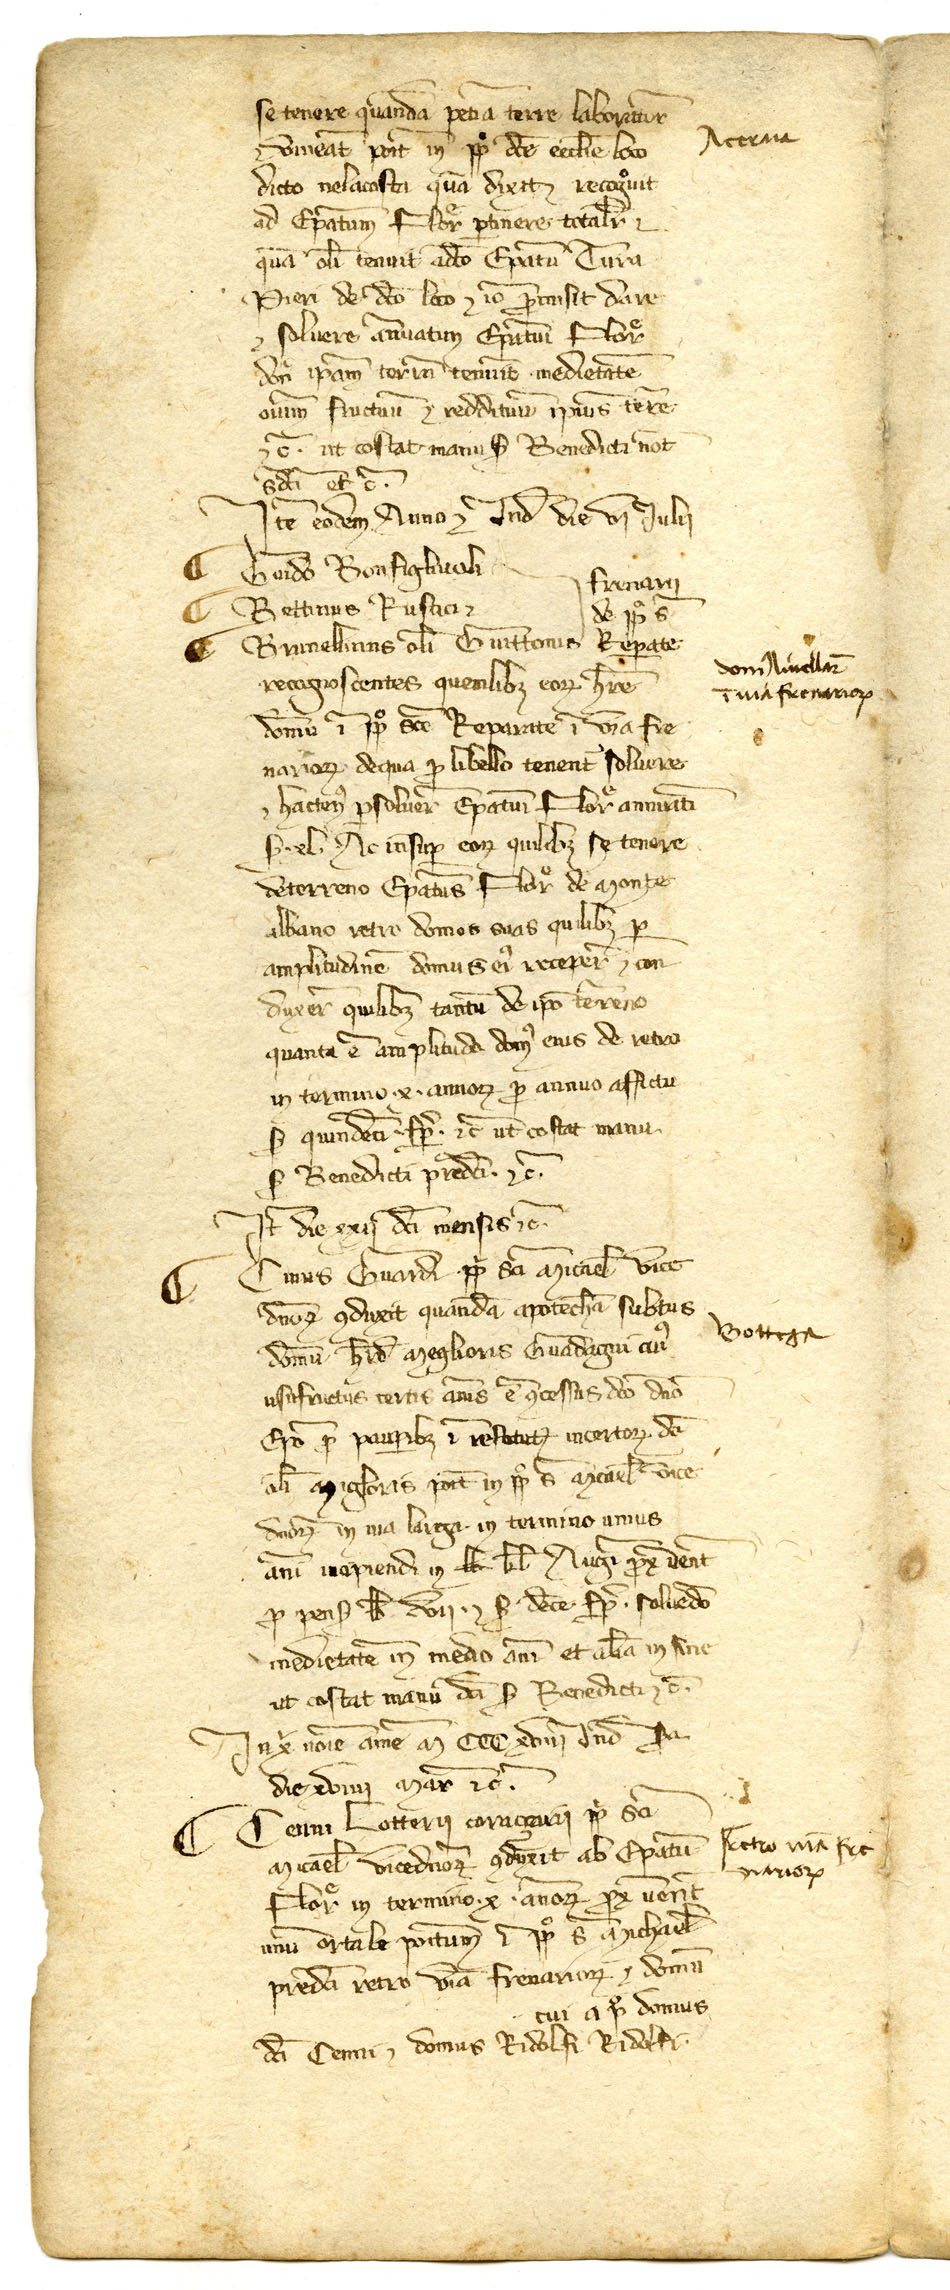 se tenere quandā petiā terre laboratiē
⁊ vineat poīt in ppo dcē ecclīe loco
dicto nelacosta quā dixit ⁊ recognovit
ad Epatum Flor ptinere totalr ⁊
quā olī tenuit a dco Epatu Tura
Pieri de dco loco ⁊ io promisit dare
⁊ solvere annuatim Epatui Flor
donˀ ipam terrā tenuit medietatē
oīum fructuū ⁊ reddituū ipius terre
⁊c̄. ut costat manu s Benedicti not
sdci et c̄.
Itē eodem Anno ⁊ Ind die vj Julij
Guido Bonfigliuoli
Bettinus Rustici
Brunellinus olī Guittonis
frenarij
de ppo S
Repate
recognoscentes quemlibꝫ eorꝫ hre
domū ī ppo sce Reparate ī via fre
nariorꝫ de qua p libello tenent solvere
⁊ hactenꝰ psolver Epatui Flor annuatī
s. xl. Ac insup eorꝫ quilibꝫ se tenere
de terreno Epatus Flor de monte
albano retro domos suas quilibꝫ p
amplitudinē domus eiˀ receper ⁊ con
duxer quilibꝫ tantū de ipo terreno
quanta ē amplitudo domˀ eius de retro
in termino .x. annorꝫ p annuo affictu
s quindeci .fp. ⁊c̄ ut costat manu
s Benedicti predci. ⁊c̄.
It die xxij dci mensis ⁊c̄.
Cinus Guardi pp sci Micael vice
dnorꝫ ꝯduxit quandā apotecha subtus
domū hrd Meglioris Guadagni cuiˀ
usufructus certis anis ē ꝯcessus dco dno
Epo p paupibꝫ ī restitut incertorꝫ dci
olī Migloris poīt in pp S Micael vice
dnorꝫ in via larga in termino unius
ani incipiendi in kl Augti prox vent
p pens lb vij. ⁊ s dece fp. solvedo
medietate in medio ani et alia in fine
ut costat manu dci s Benedicti ⁊c̄.
In x noie amē M CCC xviij Ind pa
die xviiij mar ⁊c̄.
Cenni Lotterij corazarij pp sci
Micael vicednorꝫ ꝯduxit ab Epatu
Flor in termino .x. annorꝫ prox vent
unū ortale positum ī ppo S Michael
predcā retro viā frenariorꝫ ⁊ domū
cui a po domus
dci Cenni ⁊ domus Ridolfi Ridolfi.
Acerua
domˀ Nivellar
ī via frenariorꝫ
Bottega
Retro viā fre
nariorꝫ